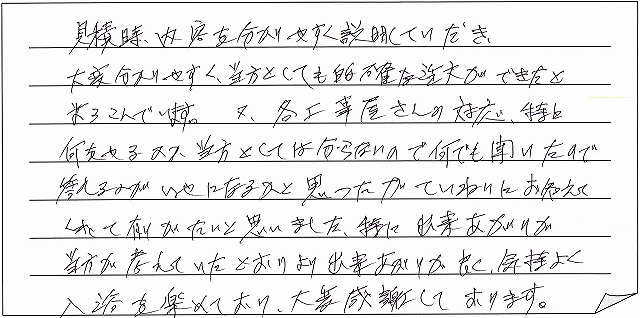 見積時、内容を分かりやすく説明していただき
大変分かりやすく、当方としても的確な注文ができたと
よろこんでいます。又、各工事屋さんの対応、特に
何をやるのか、当方としては分らないので何でも聞いたので
答えるのがいやになるかと思ったがていねいにお答えて
くれて有りがたいと思いました、特に出来あがりが
当方が考えていたとおりより出来あがりが良く、気持よく
入浴を楽めており、大変感謝しております。